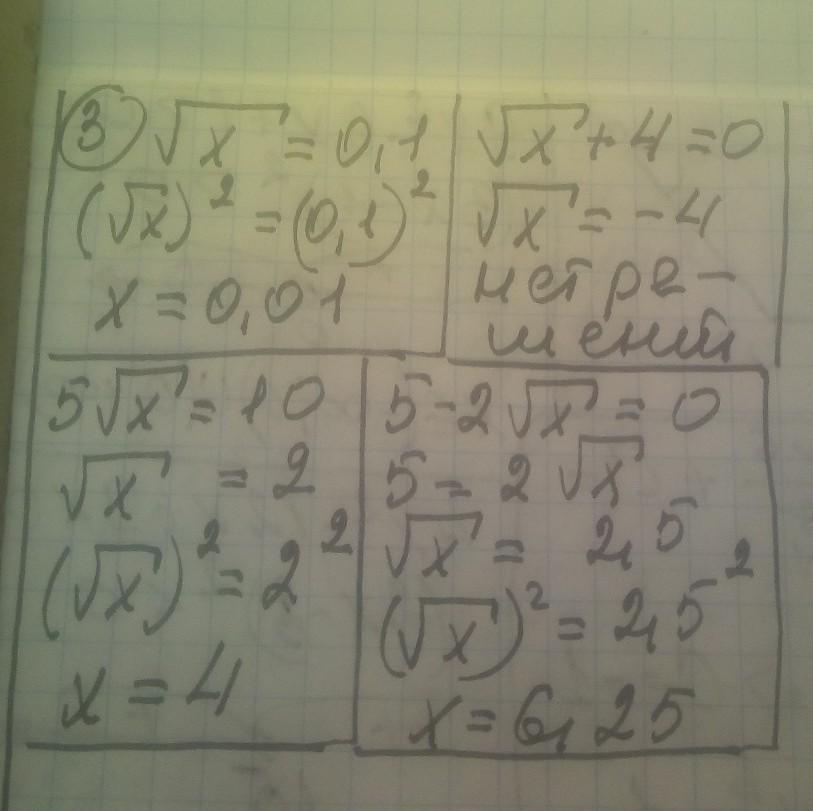 ③ √x = 0,1
(√x)² = (0,1)²
x = 0,01
√x + 4 = 0
√x = -4
нет ре-
шений
5√x = 10
√x = 2
(√x)² = 2²
x = 4
5 - 2√x = 0
5 = 2√x
√x = 2,5
(√x)² = 2,5²
x = 6,25